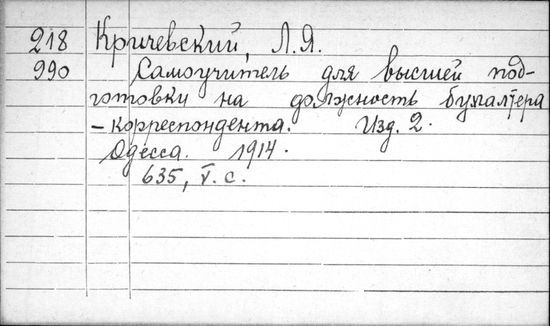 218 Кричевский, Л.Я.
990 Самоучитель для высшей под-
готовки на должность бухгалтера
-корреспондента. Изд. 2.
Одесса. 1914.
635, V. с.